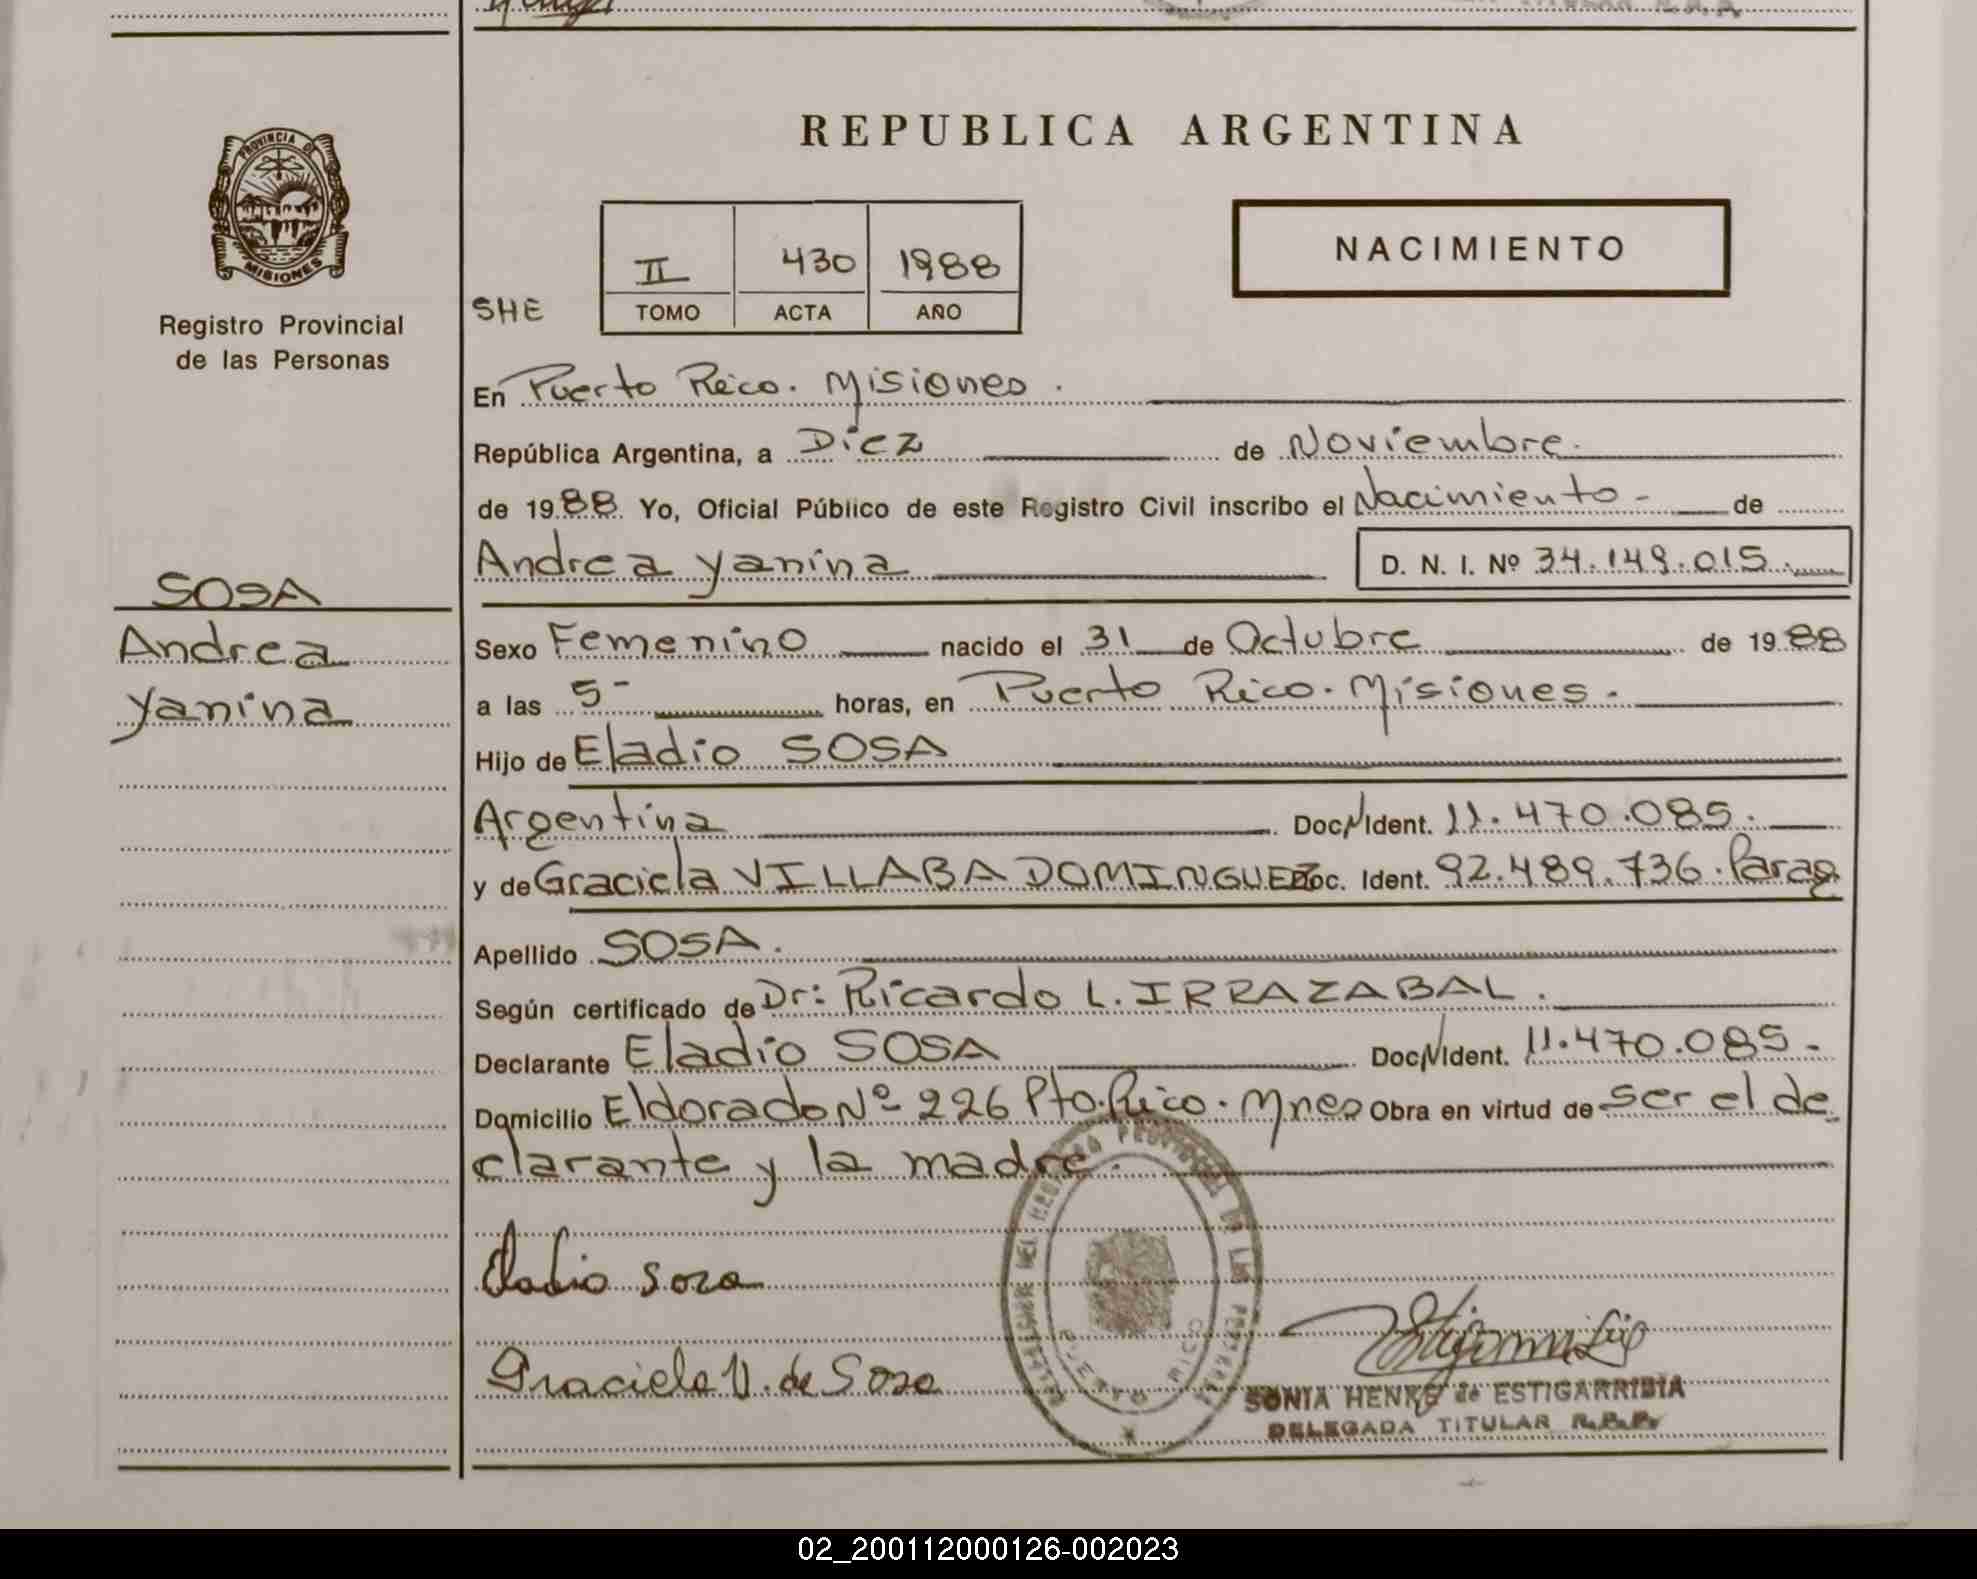 PROVINCIA DE
MISIONES
Registro Provincial
de las Personas
SOSA
Andrea
Yanina
REPUBLICA ARGENTINA
II 430 1988
TOMO ACTA AÑO
NACIMIENTO
SHE
En Puerto Rico. Misiones.
República Argentina, a Diez de Noviembre.
de 1988 Yo, Oficial Público de este Registro Civil inscribo el Nacimiento - de
Andrea Yanina D. N. I. Nº 34.149.015
Sexo Femenino nacido el 31 de Octubre de 1988
a las 5- horas, en Puerto Rico. Misiones.
Hijo de Eladio SOSA
Argentina Doc. N Ident. 11.470.085.
y de Graciela VILLABA DOMINGUEZ Doc. Ident. 92.489.736. Parag
Apellido SOSA.
Según certificado de Dr: Ricardo L. IRRAZABAL.
Declarante Eladio SOSA Doc. N Ident. 11.470.085.
Domicilio Eldorado Nº 226 Pto. Rico. Mnes Obra en virtud de ser el de
clarante y la madre.
Eladio Sosa
Graciela V. de Sosa
PUERTO RICO
SONIA HENKE de ESTIGARRIBIA
DELEGADA TITULAR R.P.P.
02_200112000126-002023